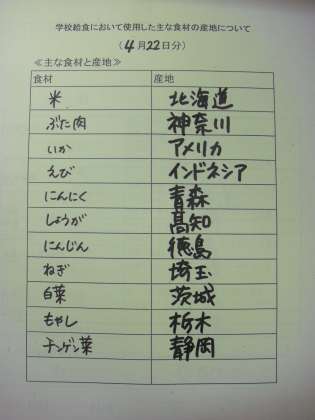 学校給食において使用した主な食材の産地について
(4月22日分)
≪主な食材と産地≫
食材 産地
米 北海道
ぶた肉 神奈川
いか アメリカ
えび インドネシア
にんにく 青森
しょうが 高知
にんじん 徳島
ねぎ 埼玉
白菜 茨城
もやし 栃木
チンゲン菜 静岡